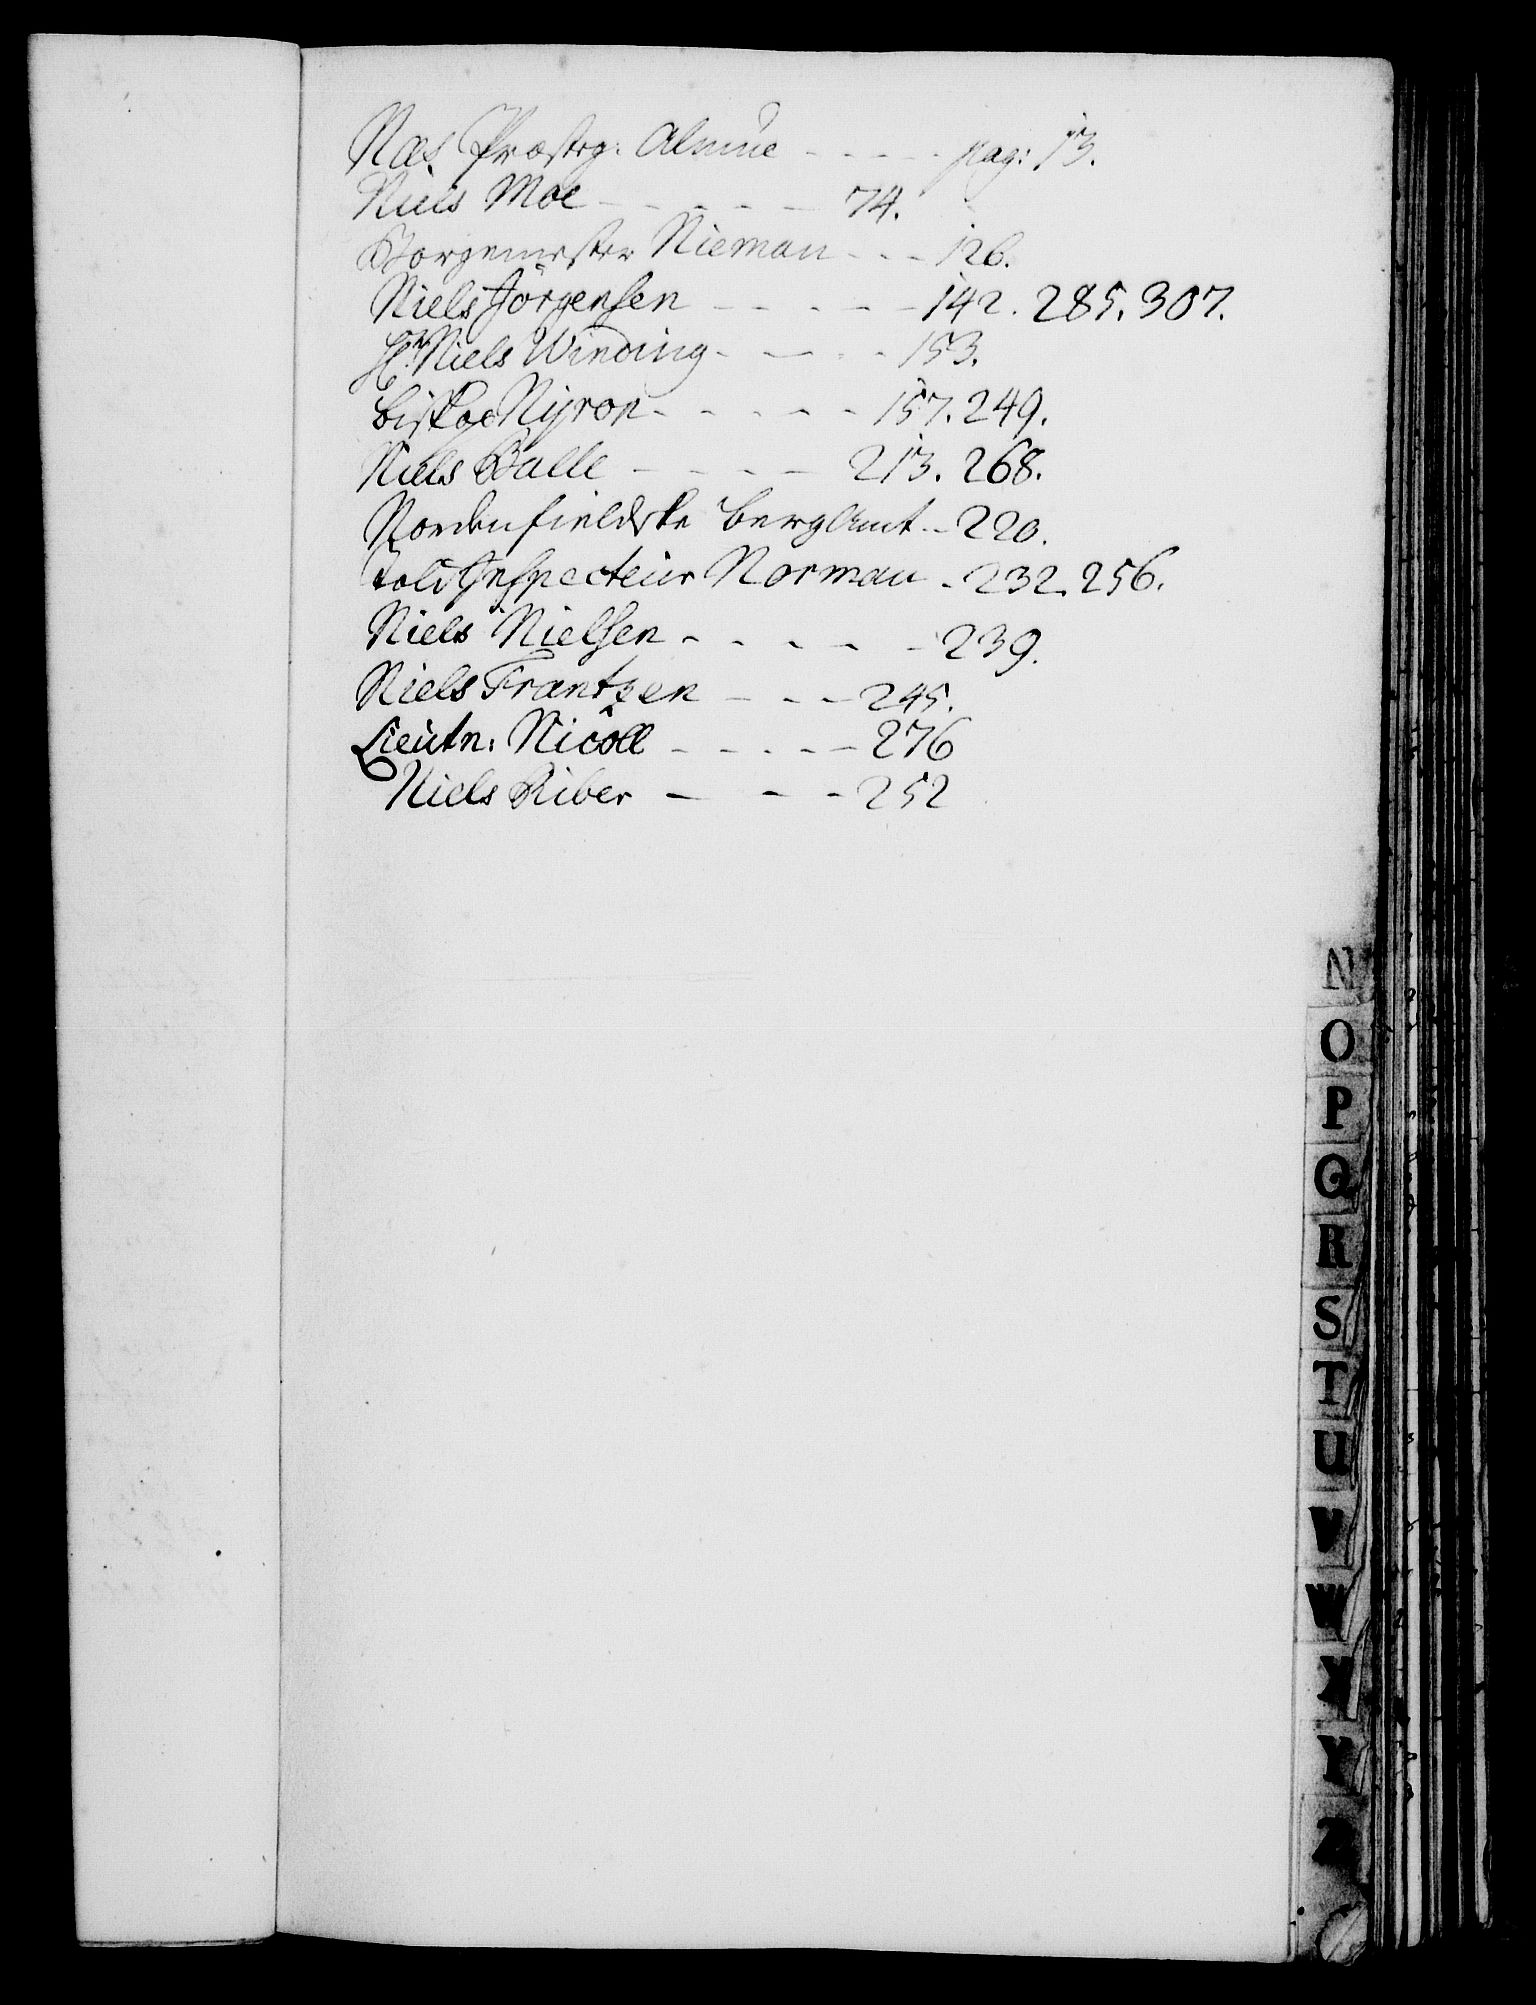 Næs Præstg: Almue - - - - - pag: 13.
Niels Moe - - - - - - 74.
Borgemester Nieman - - - 126.
Niels Jörgensen - - - - - 142. 285. 307.
Hr. Niels Winding - - - - 153.
Biskop Nyrop - - - - - 157. 249.
Niels Balle - - - - - 213. 268.
Nordenfieldske BergAmt - - 220.
Told Inspecteur Norman - 232. 256.
Niels Nielsen - - - - - 239.
Niels Frantzen - - - 245.
Lieutn: Nicoll - - - - - 276
Niels Riber - - - 252
N
O
P
Q
R
S
T
U
V
W
X
Y
Z